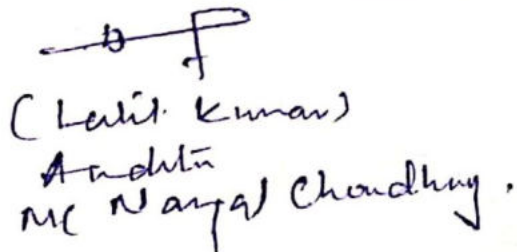 (Lalit Kumar)
Auditor
MC Nangal Choudhry.